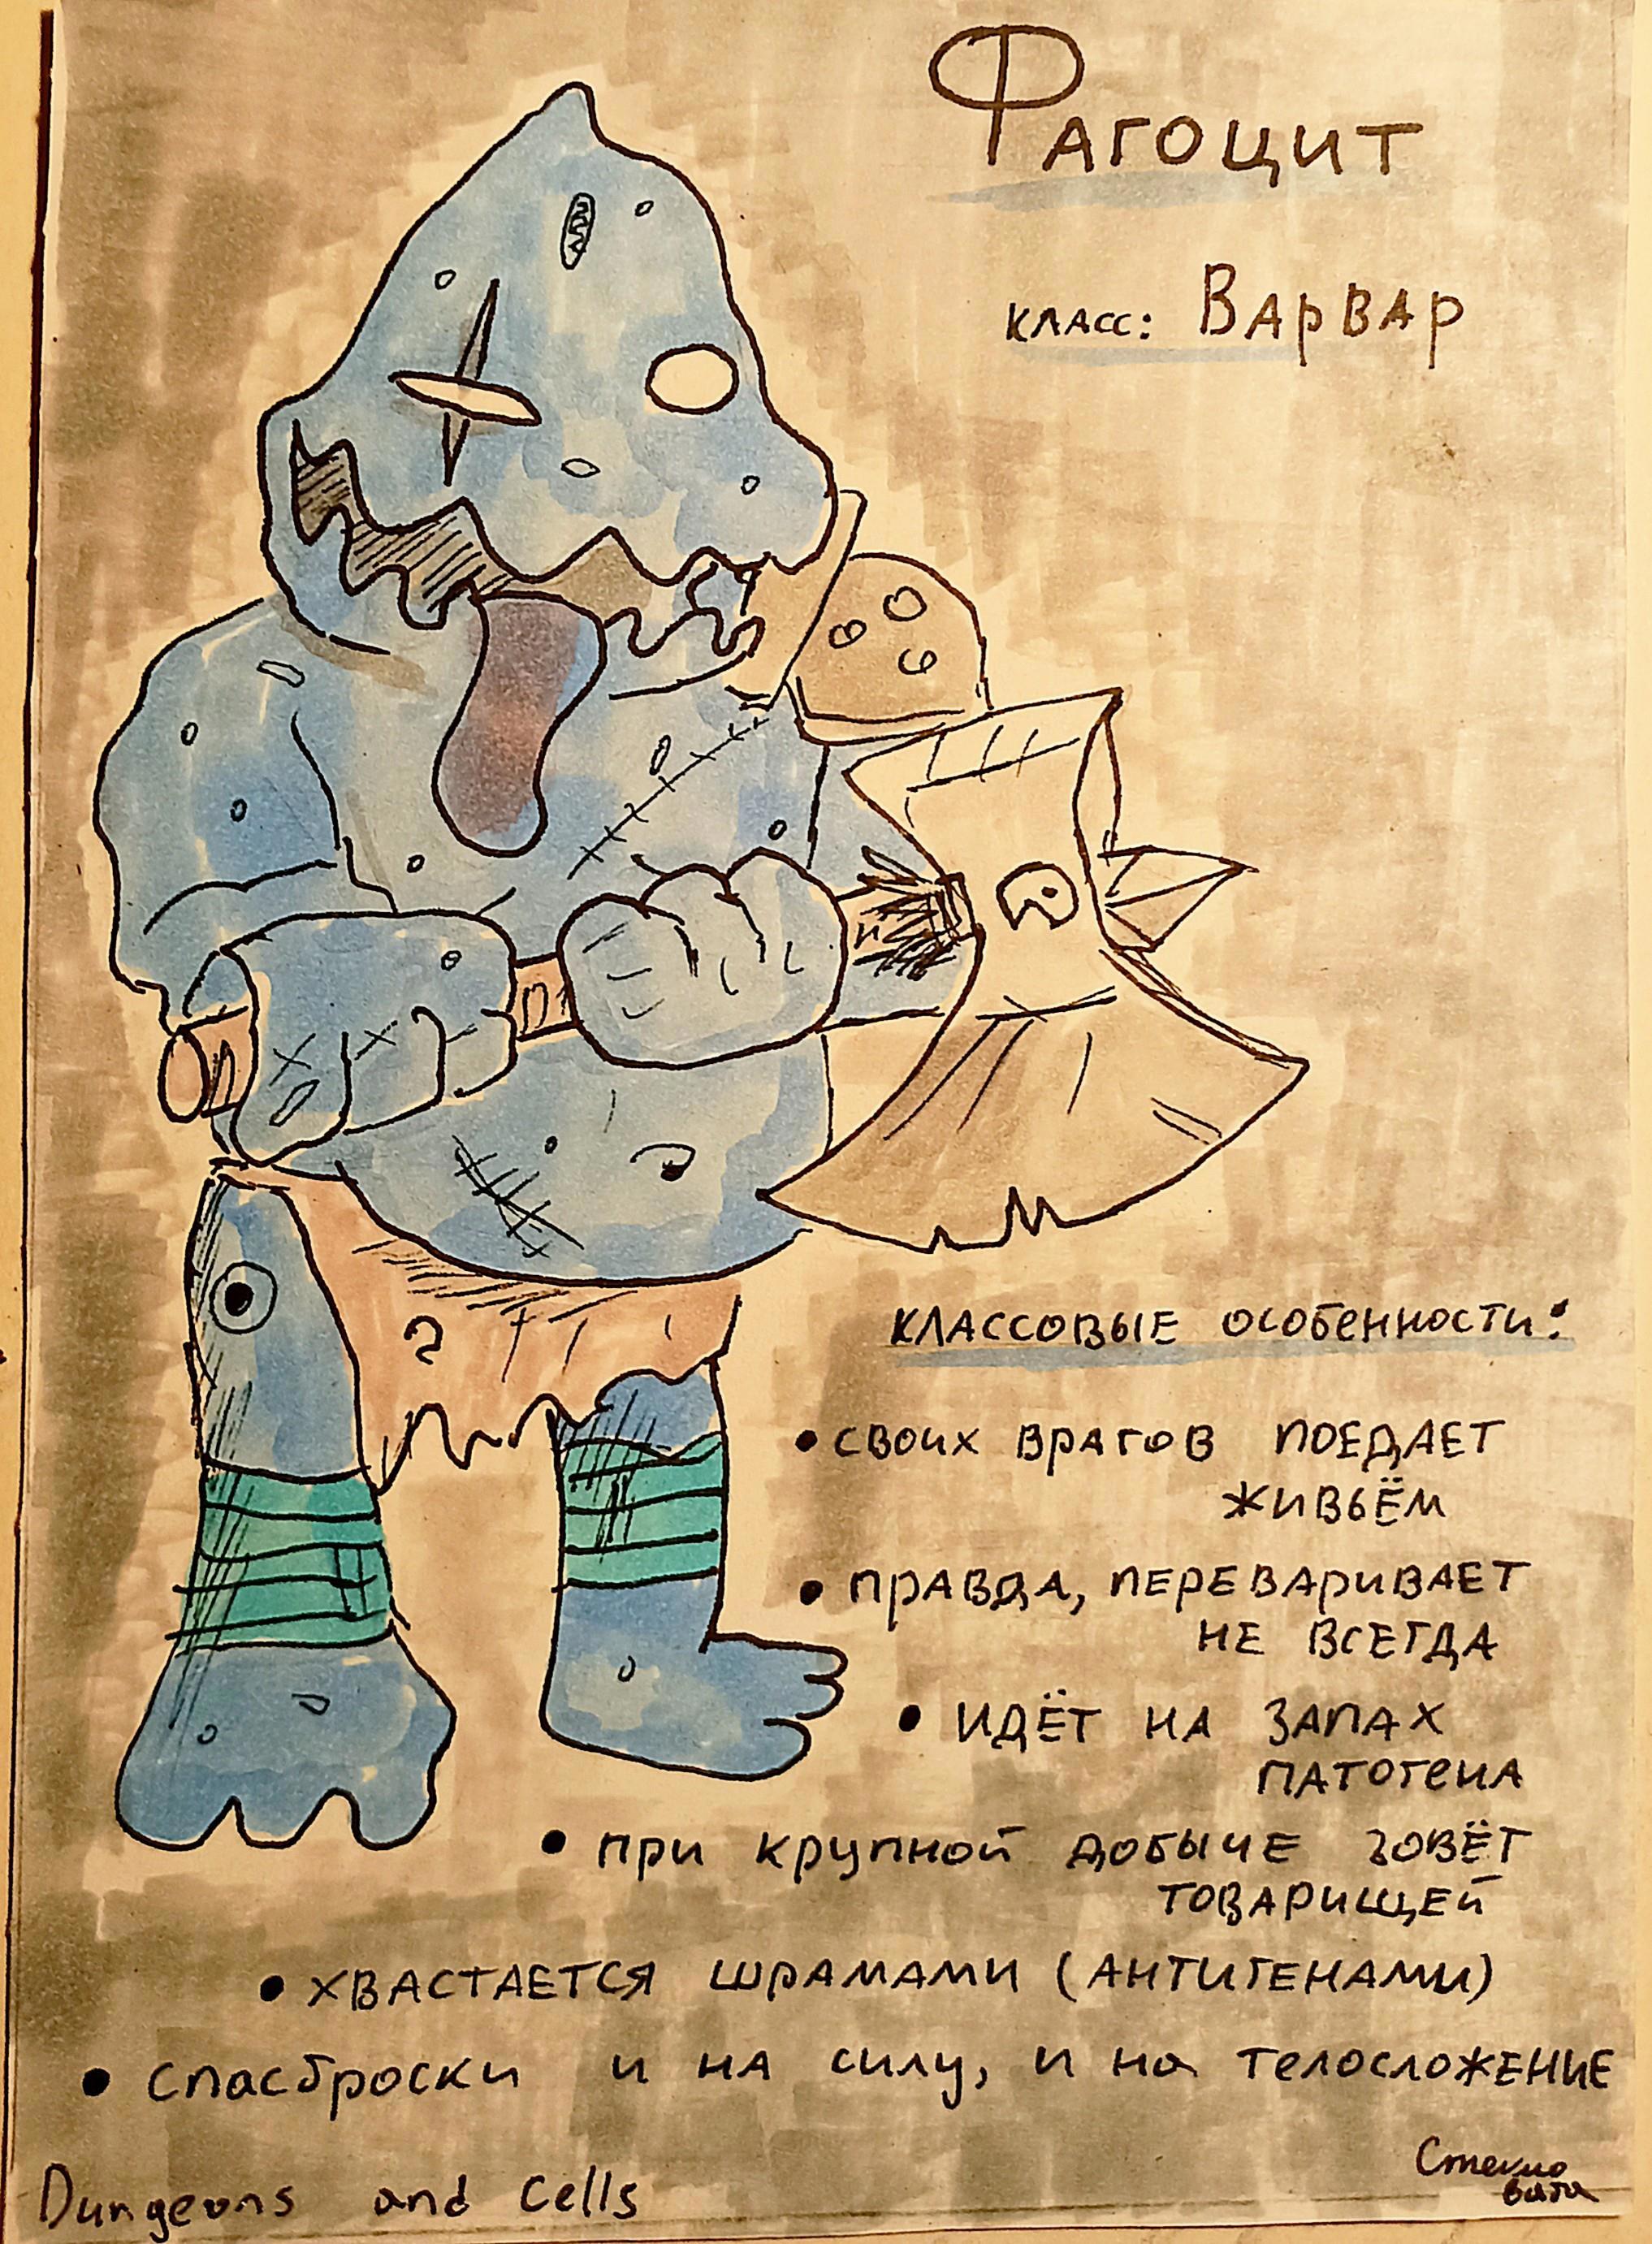 Фагоцит
класс: Варвар
классовые особенности:
• своих врагов поедает
живьём
• правда, переваривает
не всегда
• идёт на запах
патогена
• при крупной добыче зовёт
товарищей
• хвастается шрамами (антигенами)
• спасброски и на силу, и на телосложение
Стекло
вата
Dungeons and Cells